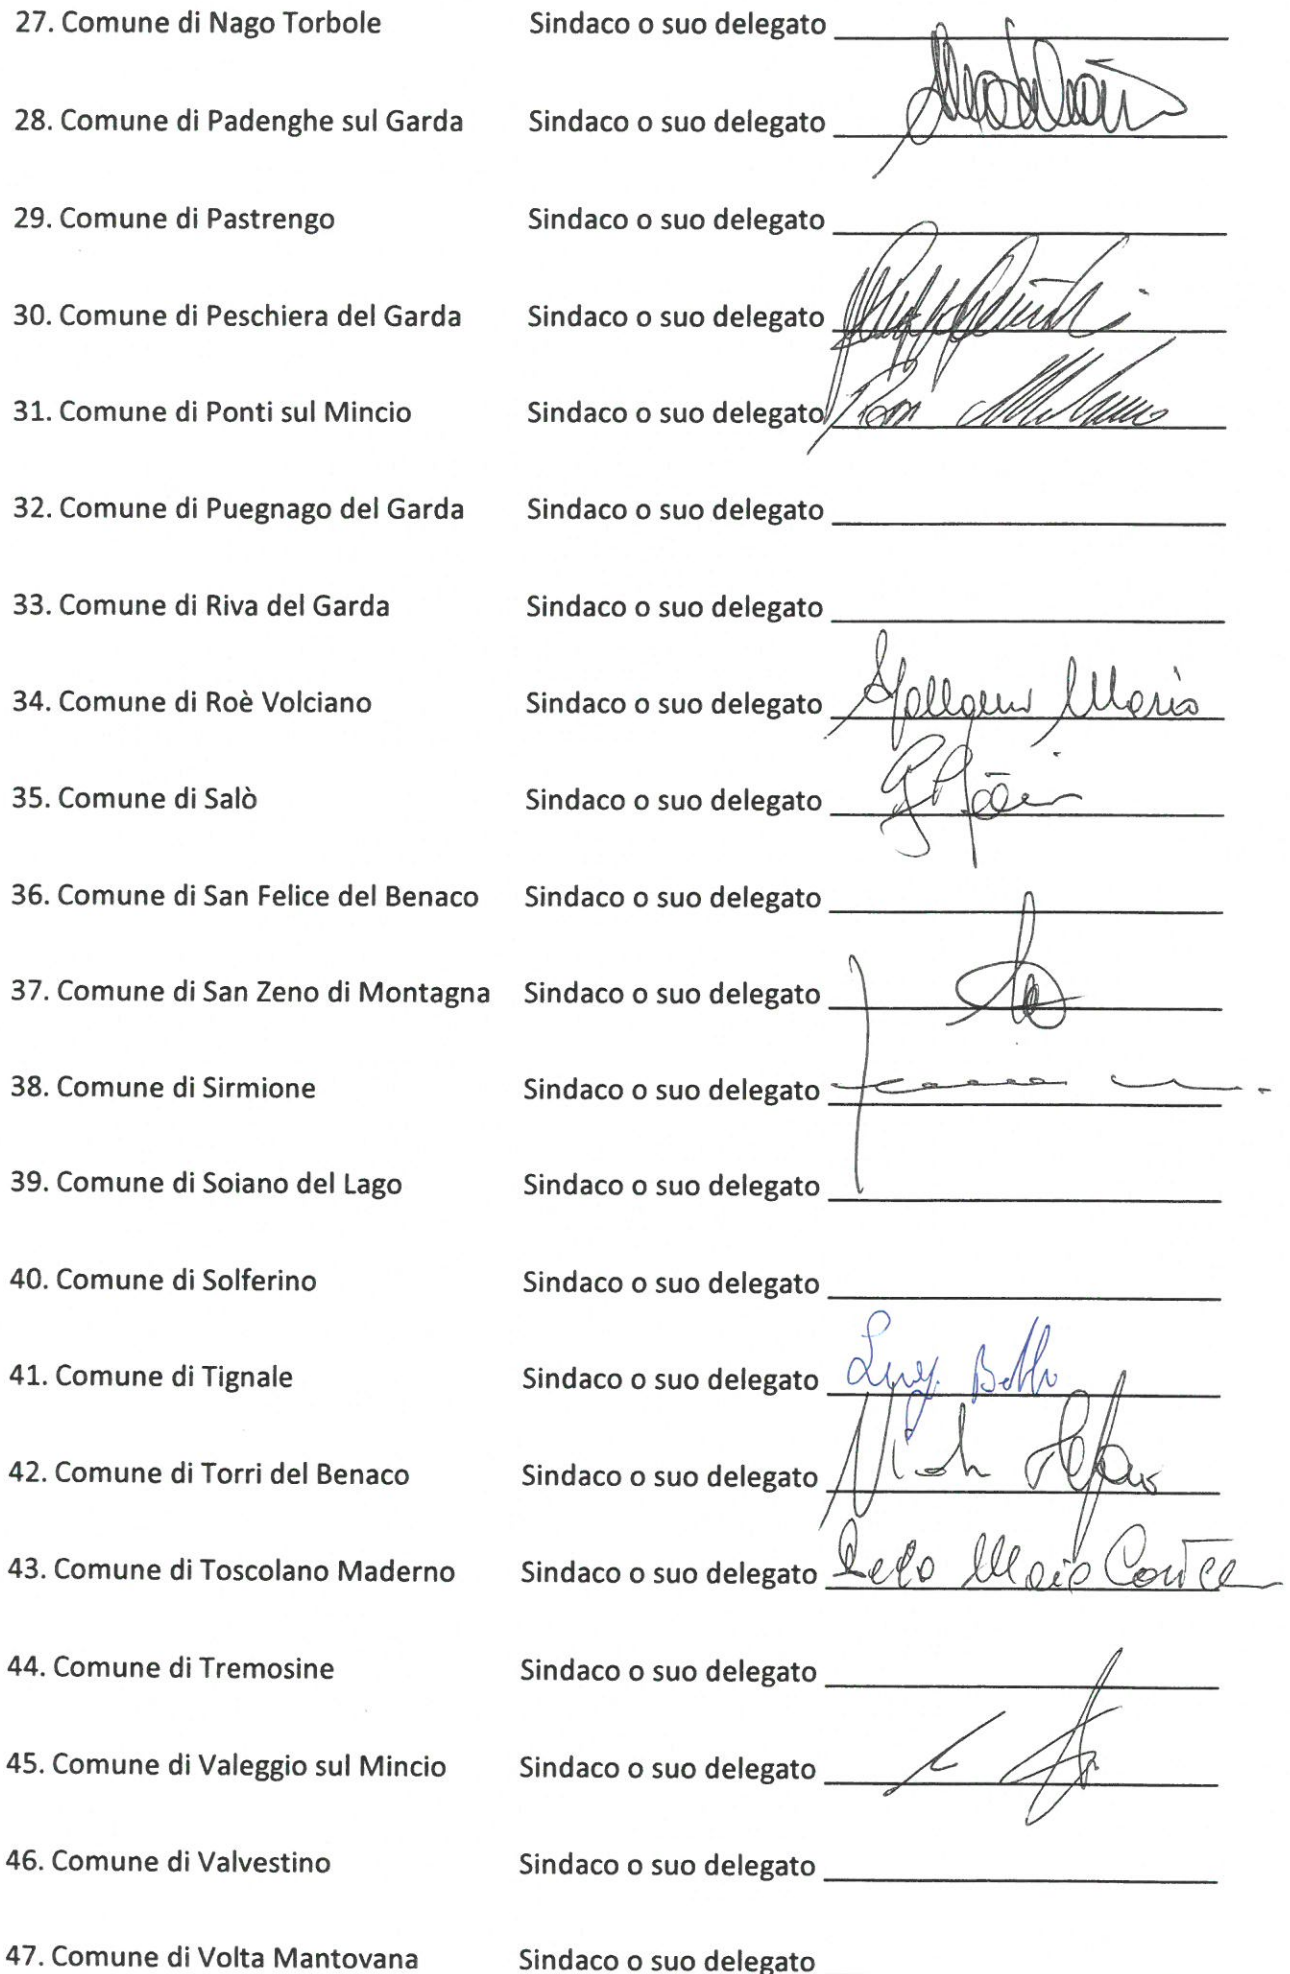 27. Comune di Nago Torbole Sindaco o suo delegato
28. Comune di Padenghe sul Garda Sindaco o suo delegato
29. Comune di Pastrengo Sindaco o suo delegato
30. Comune di Peschiera del Garda Sindaco o suo delegato
31. Comune di Ponti sul Mincio Sindaco o suo delegato
32. Comune di Puegnago del Garda Sindaco o suo delegato
33. Comune di Riva del Garda Sindaco o suo delegato
34. Comune di Roè Volciano Sindaco o suo delegato Mario
35. Comune di Salò Sindaco o suo delegato
36. Comune di San Felice del Benaco Sindaco o suo delegato
37. Comune di San Zeno di Montagna Sindaco o suo delegato
38. Comune di Sirmione Sindaco o suo delegato
39. Comune di Soiano del Lago Sindaco o suo delegato
40. Comune di Solferino Sindaco o suo delegato
41. Comune di Tignale Sindaco o suo delegato
42. Comune di Torri del Benaco Sindaco o suo delegato
43. Comune di Toscolano Maderno Sindaco o suo delegato
44. Comune di Tremosine Sindaco o suo delegato
45. Comune di Valeggio sul Mincio Sindaco o suo delegato
46. Comune di Valvestino Sindaco o suo delegato
47. Comune di Volta Mantovana Sindaco o suo delegato